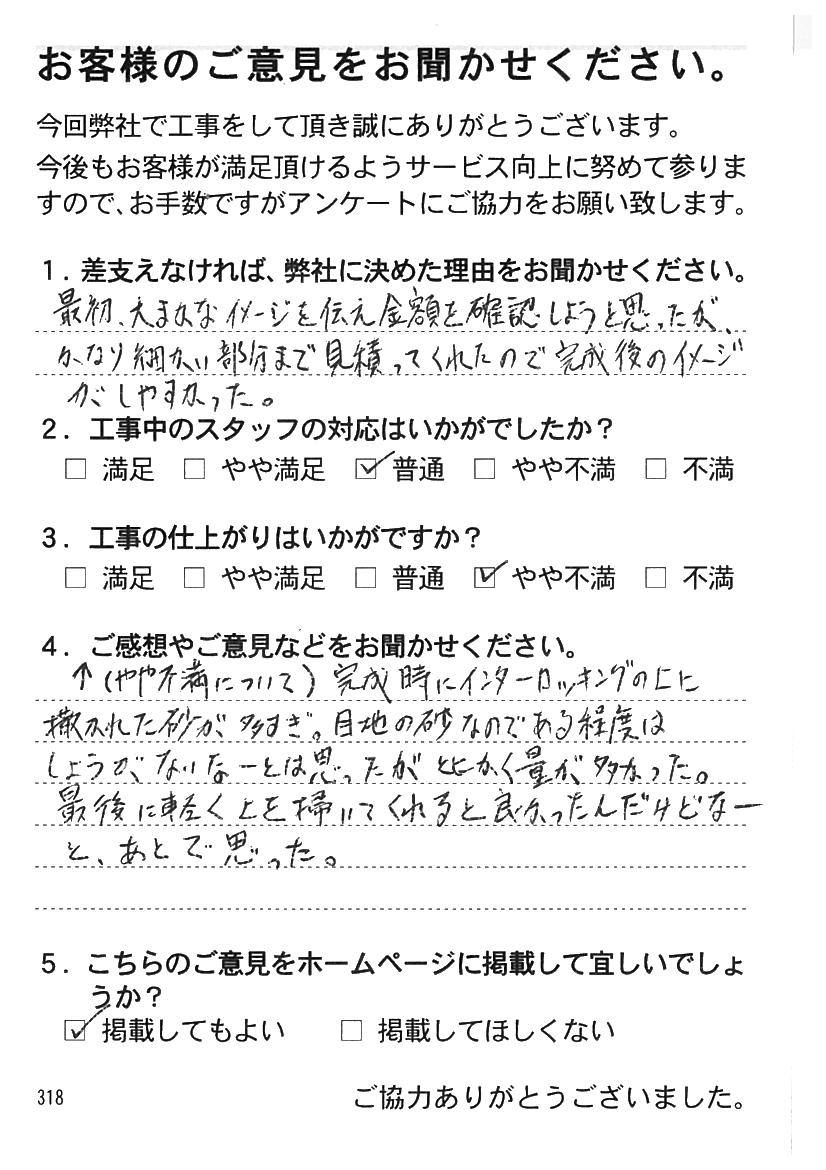 お客様のご意見をお聞かせください。
今回弊社で工事をして頂き誠にありがとうございます。
今後もお客様が満足頂けるようサービス向上に努めて参りま
すので、お手数ですがアンケートにご協力をお願い致します。
1. 差支えなければ、弊社に決めた理由をお聞かせください。
最初、大まかなイメージを伝え金額を確認しようと思ったが、
かなり細かい部分まで見積ってくれたので完成後のイメージ
がしやすかった。
2. 工事中のスタッフの対応はいかがでしたか?
□ 満足 □ やや満足 ☑ 普通 □ やや不満 □ 不満
3. 工事の仕上がりはいかがですか?
□ 満足 □ やや満足 □ 普通 ☑ やや不満 □ 不満
4. ご感想やご意見などをお聞かせください。
↑(やや不満について)完成時にインターロッキングの上に
撒かれた砂が多すぎ。目地の砂なのである程度は
しょうがないなーとは思ったがとにかく量が多かった。
最後に軽く上を掃いてくれると良かったんだけどなー
と、あとで思った。
5. こちらのご意見をホームページに掲載して宜しいでしょ
うか?
☑ 掲載してもよい □ 掲載してほしくない
318 ご協力ありがとうございました。